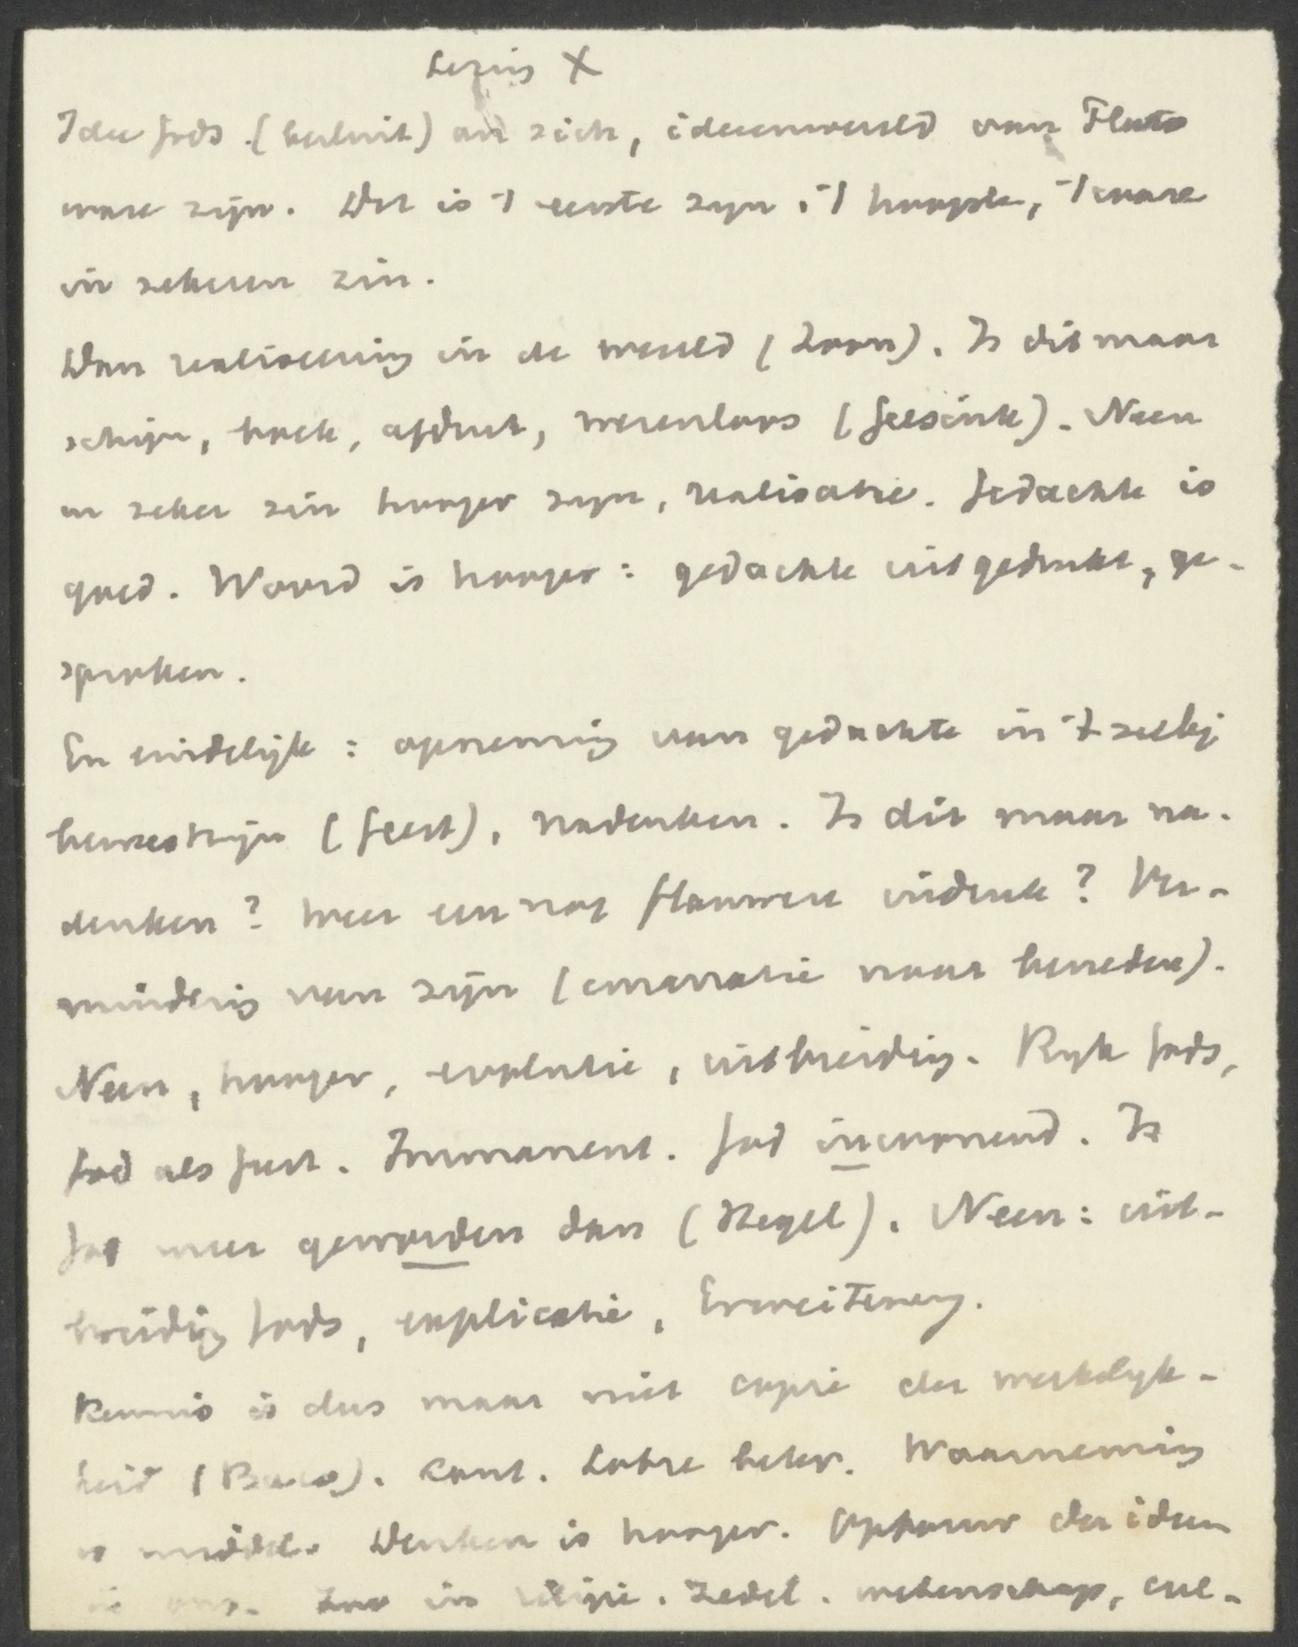 Lezing X
Idee Gods (besluit) an sich, ideeenwereld van Plato
ware zijn. Dit is 't eerste zyn, 't hoogste, 't ware
in zekeren zin.
Dan realiseering in de wereld (Zoon). Is dit maar
schijn, boek, afdruk, wezenloos. Neen
in zeker zin hooger zyn, realisatie. Gedachte is
goed. Woord is hooger: gedachte uitgedrukt, ge-
sproken.
En eindelijk: opneming van gedachte in 't zelfbe
bewustzijn (Geest), nadenken. Is dit maar na-
denken? weer een nog flauwere indruk? Ver-
mindering van zijn (emanatie naar beneden).
Neen, hooger, evolutie, uitbreiding. Ryk Gods,
God als Geest. Immanent. God inwonend. Is
God meer geworden dan (Hegel). Neen: uit-
breiding Gods, explicatie, Erweiterung.
Kennis is dus maar niet copie der werkelyk-
heid. Kant. Lotze beter. Waarneming
is middel. Denken is hooger. Opbouw der ideen
in ons. Zoo in religie. Zedel. wetenschap, cul-